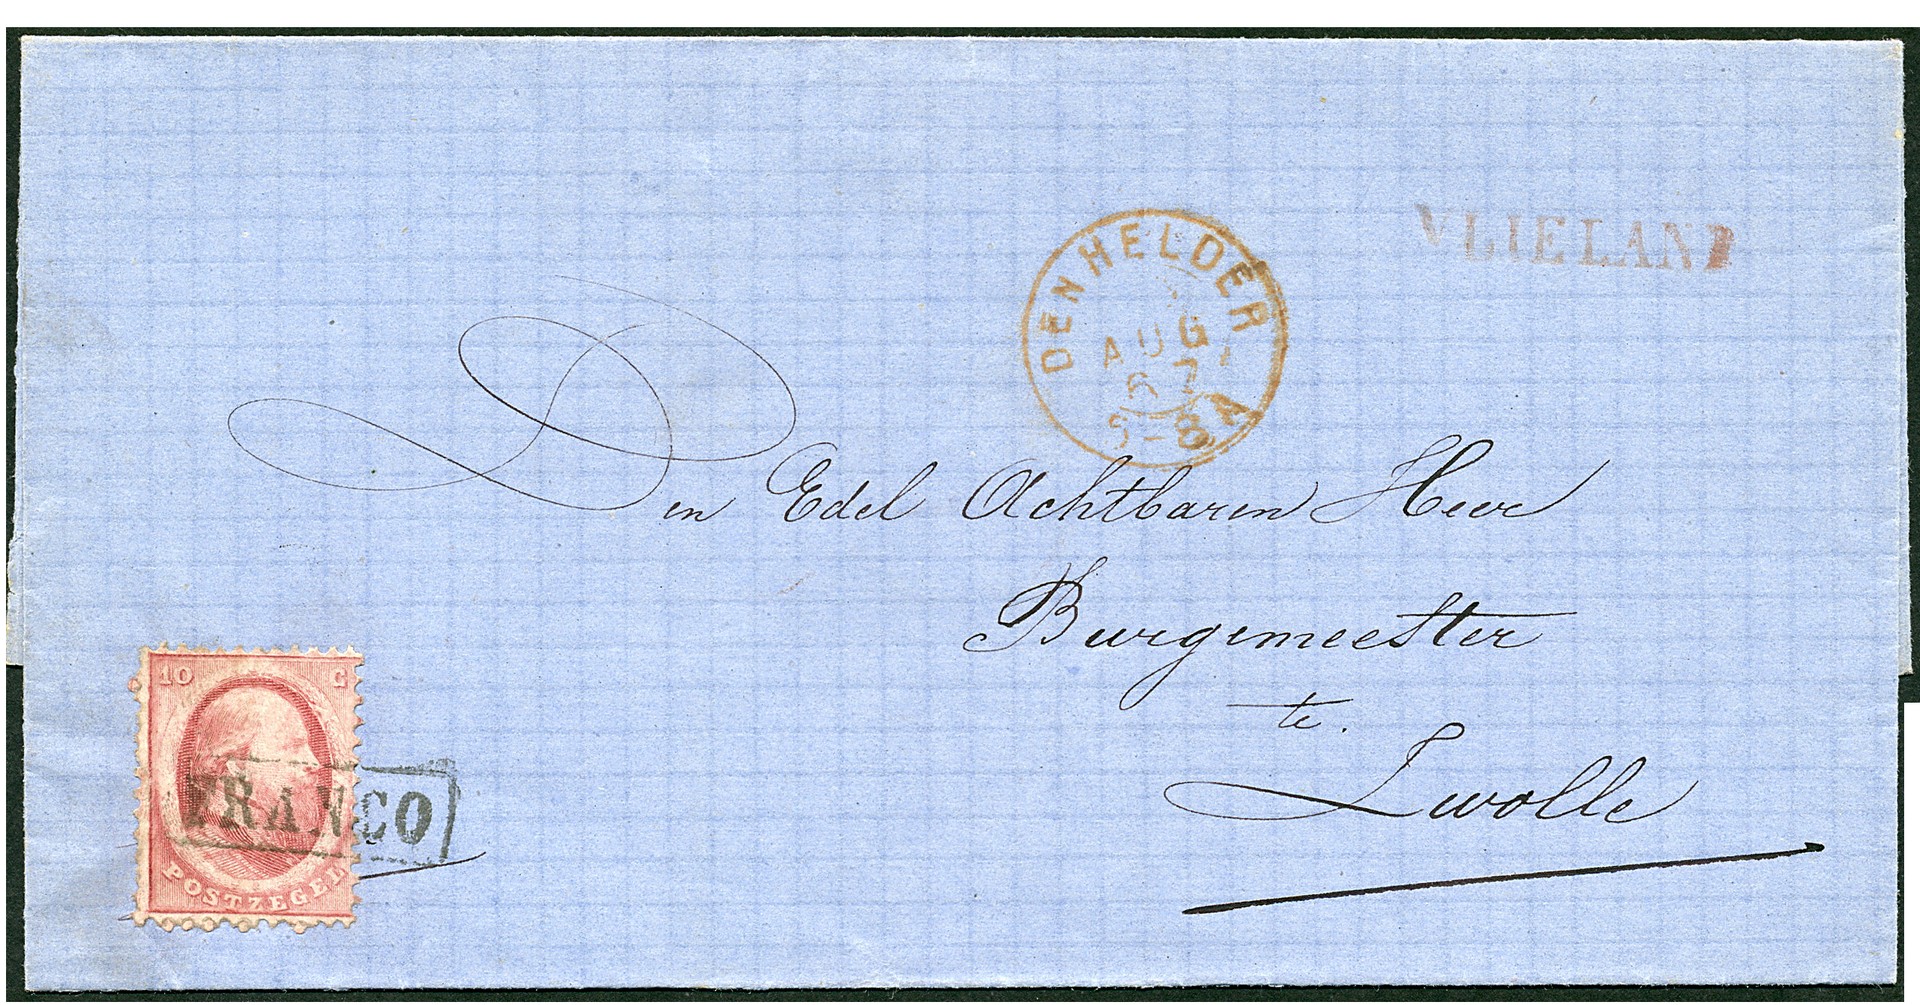 VLIELAND
DEN HELDER
AUG
67
8A
Den Edel Achtbaren Heer
Burgemeester
te
Zwolle
10 C
FRANCO
POSTZEGEL